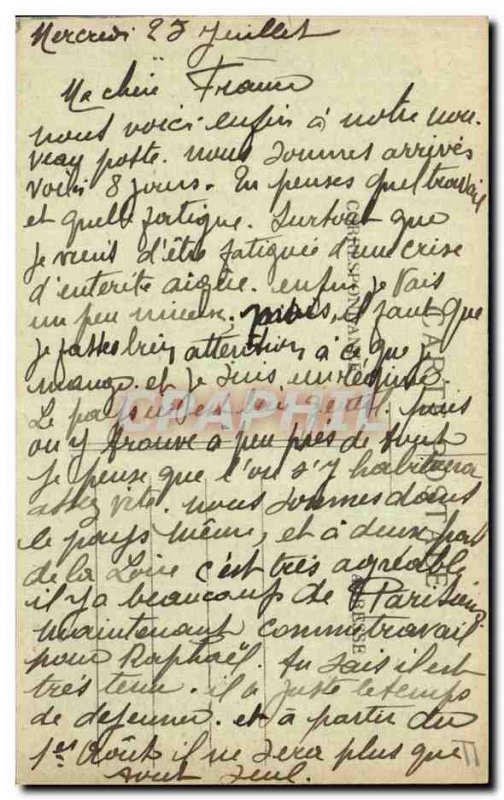 Mercredi 23 Juillet
Ma chère France
nous voici enfin à notre nou-
veau poste. nous sommes arrivés
voici 8 jours. Tu penses quel travail
et quelle fatigue. Surtout que
je viens d'être fatiguée d'une crise
d'enterite aigue. enfin je vais
un peu mieux, mais, il faut que
je fasse bien attention à ce que je
mange. et je suis un régime
Le pays mais
on y trouve à peu près de tout
je pense que l'on s'y habituera
assez vite. nous sommes dans
le pays même, et à deux pas
de la Loire c'est très agréable
il y a beaucoup de Parisiens
maintenant comme travail
pour Raphaël. Tu sais il est
très tenu. il a juste le temps
de dejeuner. et à partir du
1er Août il ne sera plus que
tout seul.
CARTE POSTALE
CORRESPONDANCE
ADRESSE
CPAPHIL